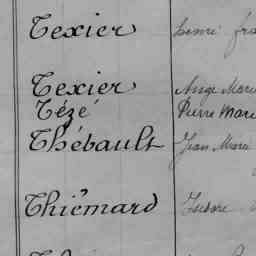 Texier Henri
Texier Ange Marie
Tézé Pierre Marie
Thébault Jean Marie
Thiémard Isidore